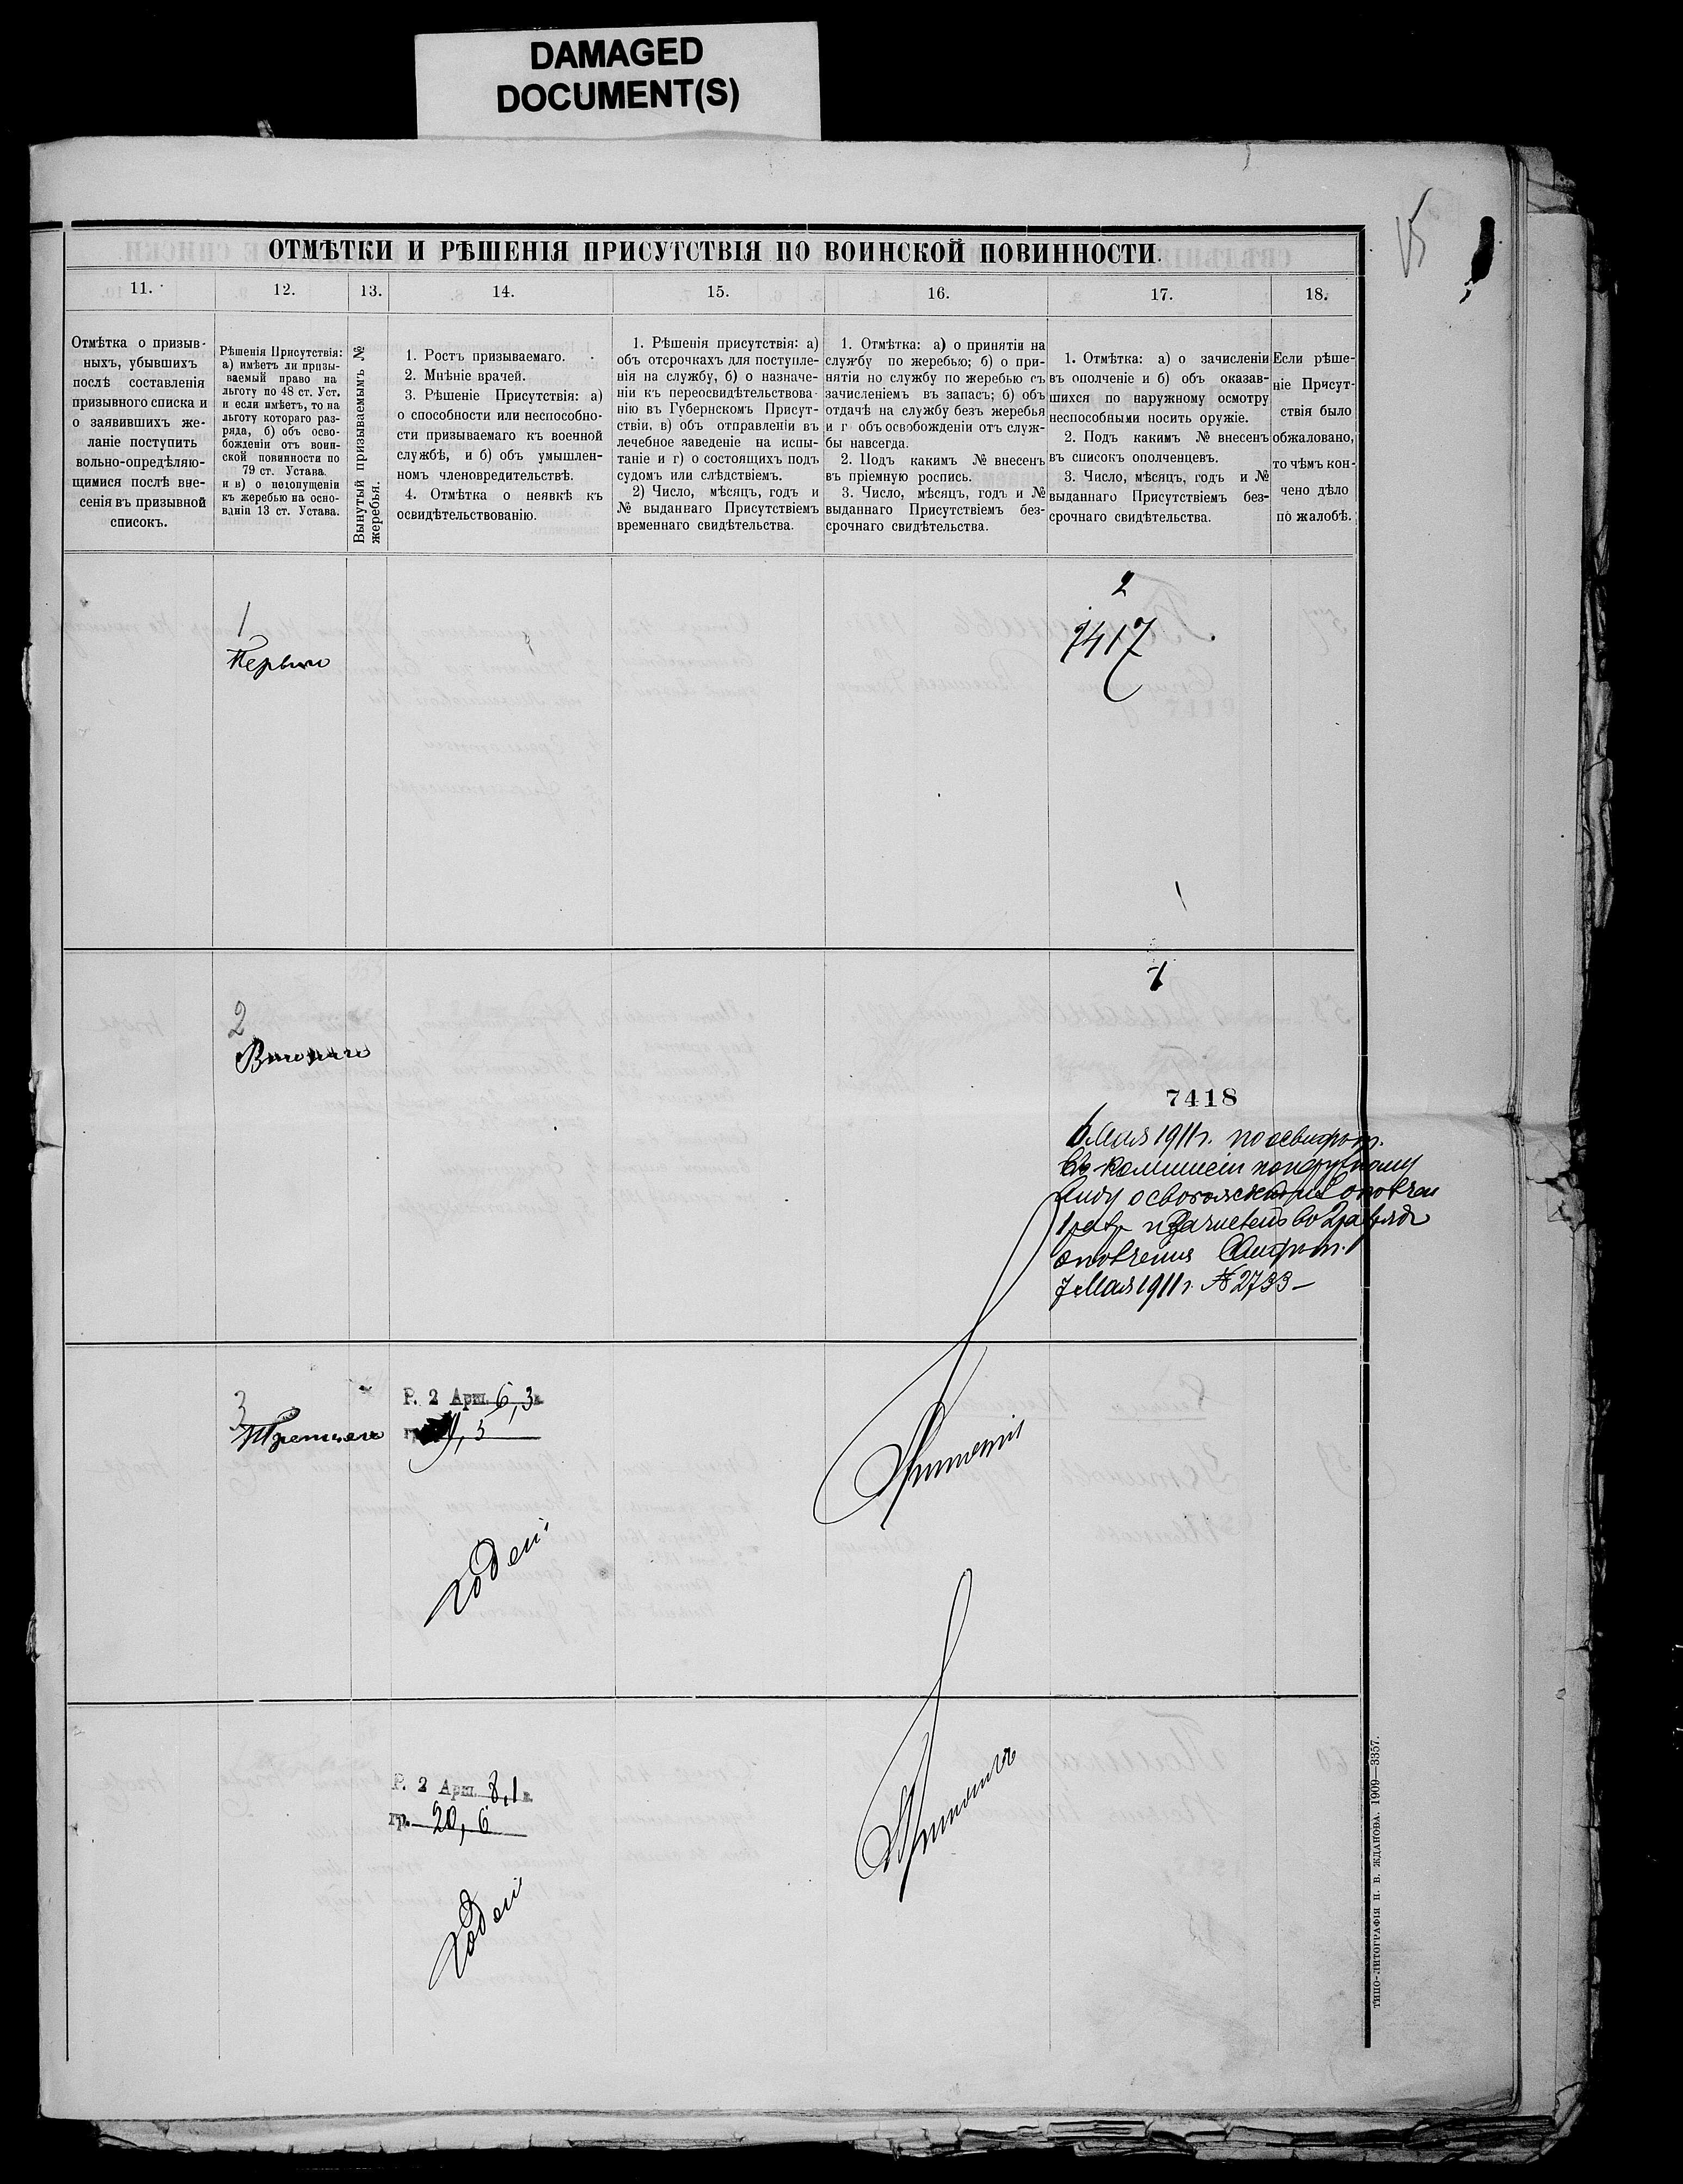 DAMAGED
DOCUMENT(S)
15
ОТМѢТКИ И РѢШЕНІЯ ПРИСУТСТВІЯ ПО ВОИНСКОЙ ПОВИННОСТИ.
11.
12.
13.
14.
15.
16.
17.
18.
Отмѣтка о призыв-
ныхъ, убывшихъ
послѣ составленія
призывного списка и
о заявившихъ же-
ланіе поступить
вольно-опредѣляю-
щимися послѣ вне-
сенія въ призывной
списокъ.
Рѣшенія Присутствія:
а) имѣетъ ли призы-
ваемый право на
льготу по 48 ст. Уст.
и если имѣетъ, то на
льготу котораго раз-
ряда, б) объ осво-
божденіи отъ воин-
ской повинности по
79 ст. Устава
и в) о недопущеніи
къ жеребью на осно-
ваніи 13 ст. Устава.
Вынутый призываемымъ №
жеребья.
1. Ростъ призываемаго.
2. Мнѣніе врачей.
3. Рѣшеніе Присутствія: а)
о способности или неспособно-
сти призываемаго къ военной
службѣ, и б) объ умышлен-
номъ членовредительствѣ.
4. Отмѣтка о неявкѣ къ
освидѣтельствованію.
1. Рѣшенія присутствія: а)
объ отсрочкахъ для поступле-
нія на службу, б) о назначе-
ніи къ переосвидѣтельствова-
нію въ Губернскомъ Присут-
ствіи, в) объ отправленіи въ
лечебное заведеніе на испы-
таніе и г) о состоящихъ подъ
судомъ или слѣдствіемъ.
2) Число, мѣсяцъ, годъ и
№ выданнаго Присутствіемъ
временнаго свидѣтельства.
1. Отмѣтка: а) о принятіи на
службу по жеребью; б) о при-
нятіи но службу по жеребью съ
зачисленіемъ въ запасъ; б) объ
отдачѣ на службу безъ жеребья
и г объ освобожденіи отъ служ-
бы навсегда.
2. Подъ какимъ № внесенъ
въ пріемную роспись.
3. Число, мѣсяцъ, годъ и №
выданнаго Присутствіемъ без-
срочнаго свидѣтельства.
1. Отмѣтка: а) о зачисленіи
въ ополченіе и б) объ оказав-
шихся по наружному осмотру
неспособными носить оружіе.
2. Подъ какимъ № внесенъ
въ списокъ ополченцевъ.
3. Число, мѣсяцъ, годъ и №
выданнаго Присутствіемъ без-
срочнаго свидѣтельства.
Если рѣше-
ніе Присут-
ствія было
обжаловано,
то чѣмъ кон-
чено дѣло
по жалобѣ.
1
Первого
2
7417
2
Второго
1
7418
6 Мая 1911 г. по освидѣт.
въ комиссіи по наружному
виду освобожденъ
1 разр и зачисленъ во 2 разрядъ
ополченія
7 Мая 1911 г. № 2733 –
3
Третьяго
Р. 2 Арш. 6,3 в.
Годенъ
Принятъ
Р. 2 Арш. 8,1 в.
гр. 20, 6
Годенъ
Принятъ
ТИПО-ЛИТОГРАФІЯ П. В. ЖДАНОВА. 1909—3357.